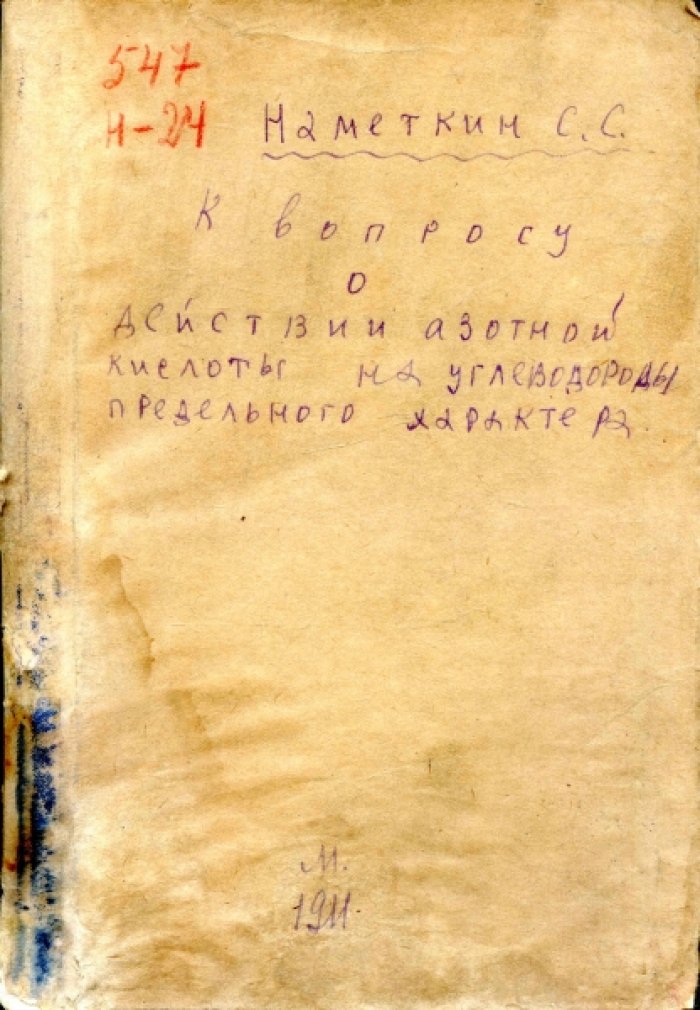 547
Н-24
Наметкин С.С.
К вопросу
о
действии азотной
кислоты на углеводороды
предельного характера.
М.
1911.